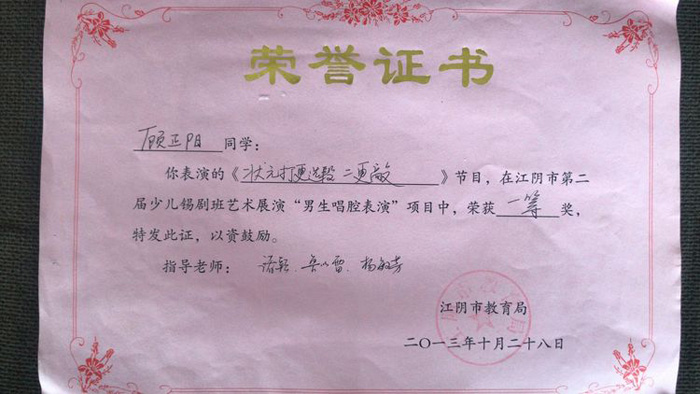 荣誉证书
顾正阳同学:
你表演的《状元打更选段 二更敲》节目,在江阴市第二
届少儿锡剧班艺术展演“男生唱腔表演”项目中,荣获一等奖,
特发此证,以资鼓励。
指导老师:
江阴市教育局
二〇一三年十月二十八日